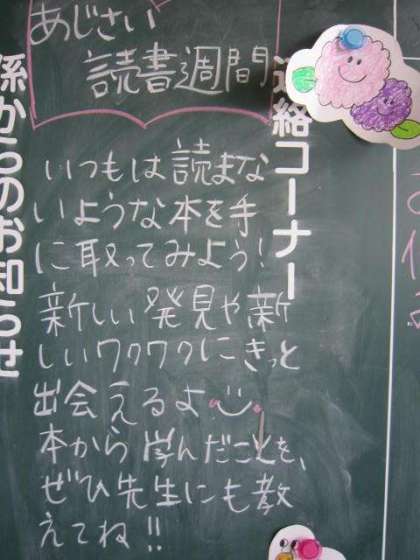 あじさい
読書週間
連絡コーナー
係からのお知らせ
いつもは読まな
いような本を手
に取ってみよう!
新しい発見や新
しいワクワクにきっと
出会えるよ
本から学んだことを、
ぜひ先生にも教
えてね!!